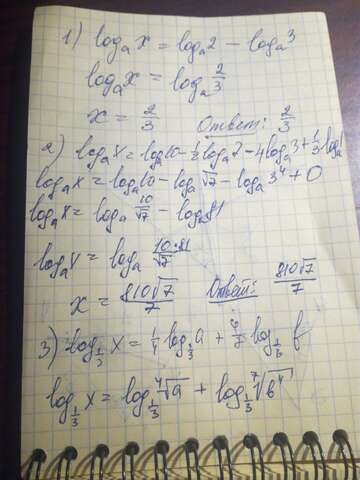 1) log_a x = log_a 2 - log_a 3
log_a x = log_a 2/3
x = 2/3 Ответ: 2/3
2) log_a x = log_a 10 - 1/2 log_a 7 - 4 log_a 3 + 1/3 log_a 1
log_a x = log_a 10 - log_a √7 - log_a 3^4 + 0
log_a x = log_a 10/√7 - log_a 81
log_a x = log_a 10·81/√7
x = 810√7/7 Ответ: 810√7/7
3) log_1/3 x = 1/4 log_1/3 a + 4/7 log_1/3 b
log_1/3 x = log_1/3 ⁴√a + log_1/3 ⁷√b⁴